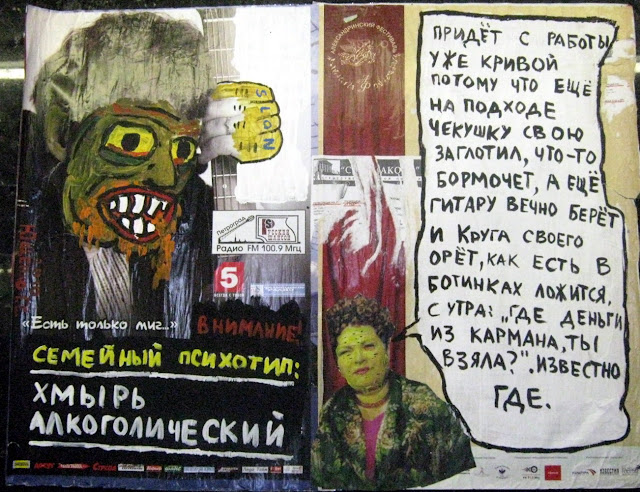 SLON
Петроград
Русский
шансон
Радио FM 100.9 Мгц
5
«Есть только миг...»
ВНИМАНИЕ!
СЕМЕЙНЫЙ ПСИХОТИП:
ХМЫРЬ
АЛКОГОЛИЧЕСКИЙ
АЛЕКСАНДРИНСКИЙ ФЕСТИВАЛЬ
ПРИДЁТ С РАБОТЫ
УЖЕ КРИВОЙ
ПОТОМУ ЧТО ЕЩЁ
НА ПОДХОДЕ
ЧЕКУШКУ СВОЮ
ЗАГЛОТИЛ, ЧТО-ТО
БОРМОЧЕТ, А ЕЩЁ
ГИТАРУ ВЕЧНО БЕРЁТ
И КРУГА СВОЕГО
ОРЁТ, КАК ЕСТЬ В
БОТИНКАХ ЛОЖИТСЯ,
С УТРА: „ГДЕ ДЕНЬГИ
ИЗ КАРМАНА, ТЫ
ВЗЯЛА?". ИЗВЕСТНО
ГДЕ.
ИЗВЕСТИЯ